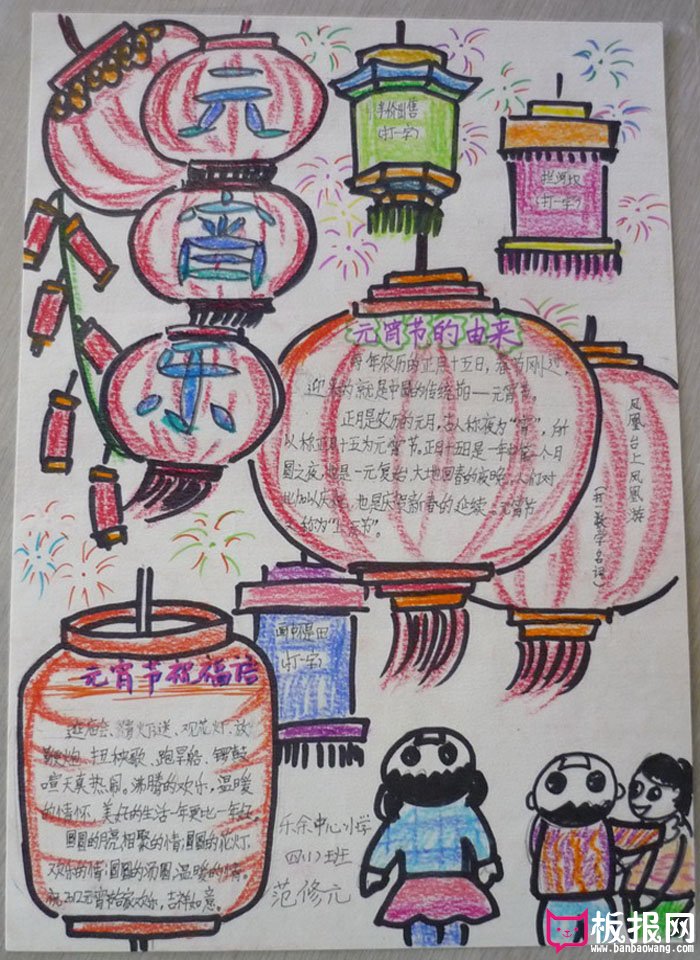 元
宵
乐
半价出售
(打一字)
拦河坝
(打一字)
元宵节的由来
每年农历的正月十五日,春节刚过,
迎来的就是中国的传统节——元宵节。
正月是农历的元月,古人称夜为“宵”,所
以称正月十五为元宵节。正月十五日是一年中第一个月
圆之夜,也是一元复始,大地回春的夜晚,人们对
此加以庆祝,也是庆贺新春的延续。元宵节
称为“上元节”。
凤凰台上凤凰游
(打一数学名词)
画中得田
(打一字)
元宵节祝福语
逛庙会、猜灯谜、观花灯、放
鞭炮、扭秧歌、跑旱船、锣鼓
喧天真热闹。沸腾的欢乐,温暖
的情怀,美好的生活一年更比一年好。
圆圆的月亮相聚的情;圆圆的花灯
欢乐的情;圆圆的汤圆,温暖的情。
祝 元宵 家欢乐,吉祥如意。
乐余中心小学
四(1)班
范修元
板报网
www.banbaowang.com